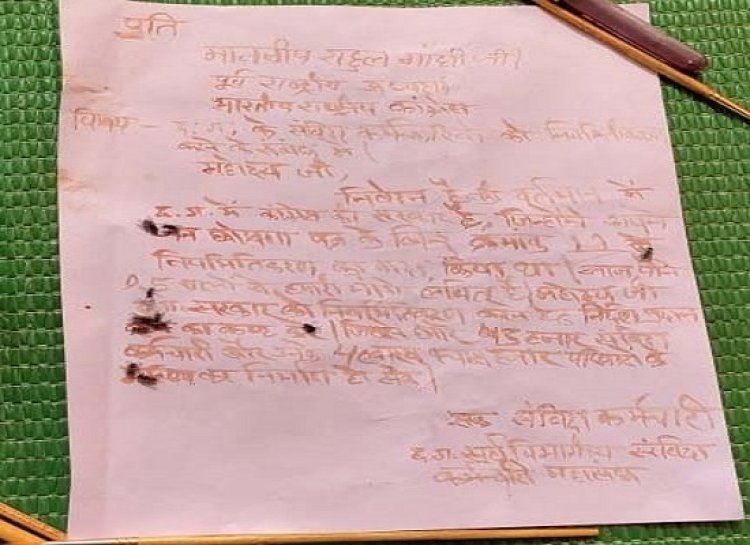 प्रति
माननीय राहुल गांधी जी
पूर्व राष्ट्रीय अध्यक्ष
भारतीय राष्ट्रीय कांग्रेस
विषय - छ.ग. के संविदा कर्मचारियों को नियमितिकरण
करने के संबंध में।
महोदय जी,
निवेदन है कि वर्तमान में
छ.ग. में कांग्रेस की सरकार है, जिन्होंने अपने
जन घोषणा पत्र के बिंदु क्रमांक 11 में
नियमितिकरण का वादा किया था। आज पौने
5 सालों से हमारी मांग लंबित है। महोदय जी
सरकार को नियमितिकरण करने हेतु निर्देश प्रदान
का कष्ट करें। जिससे और 45 हजार संविदा
कर्मचारी और उनके 4 लाख परिवार के
का निर्माण हो सके।
एक संविदा कर्मचारी
छ.ग. सर्व विभागीय संविदा
कर्मचारी महासंघ